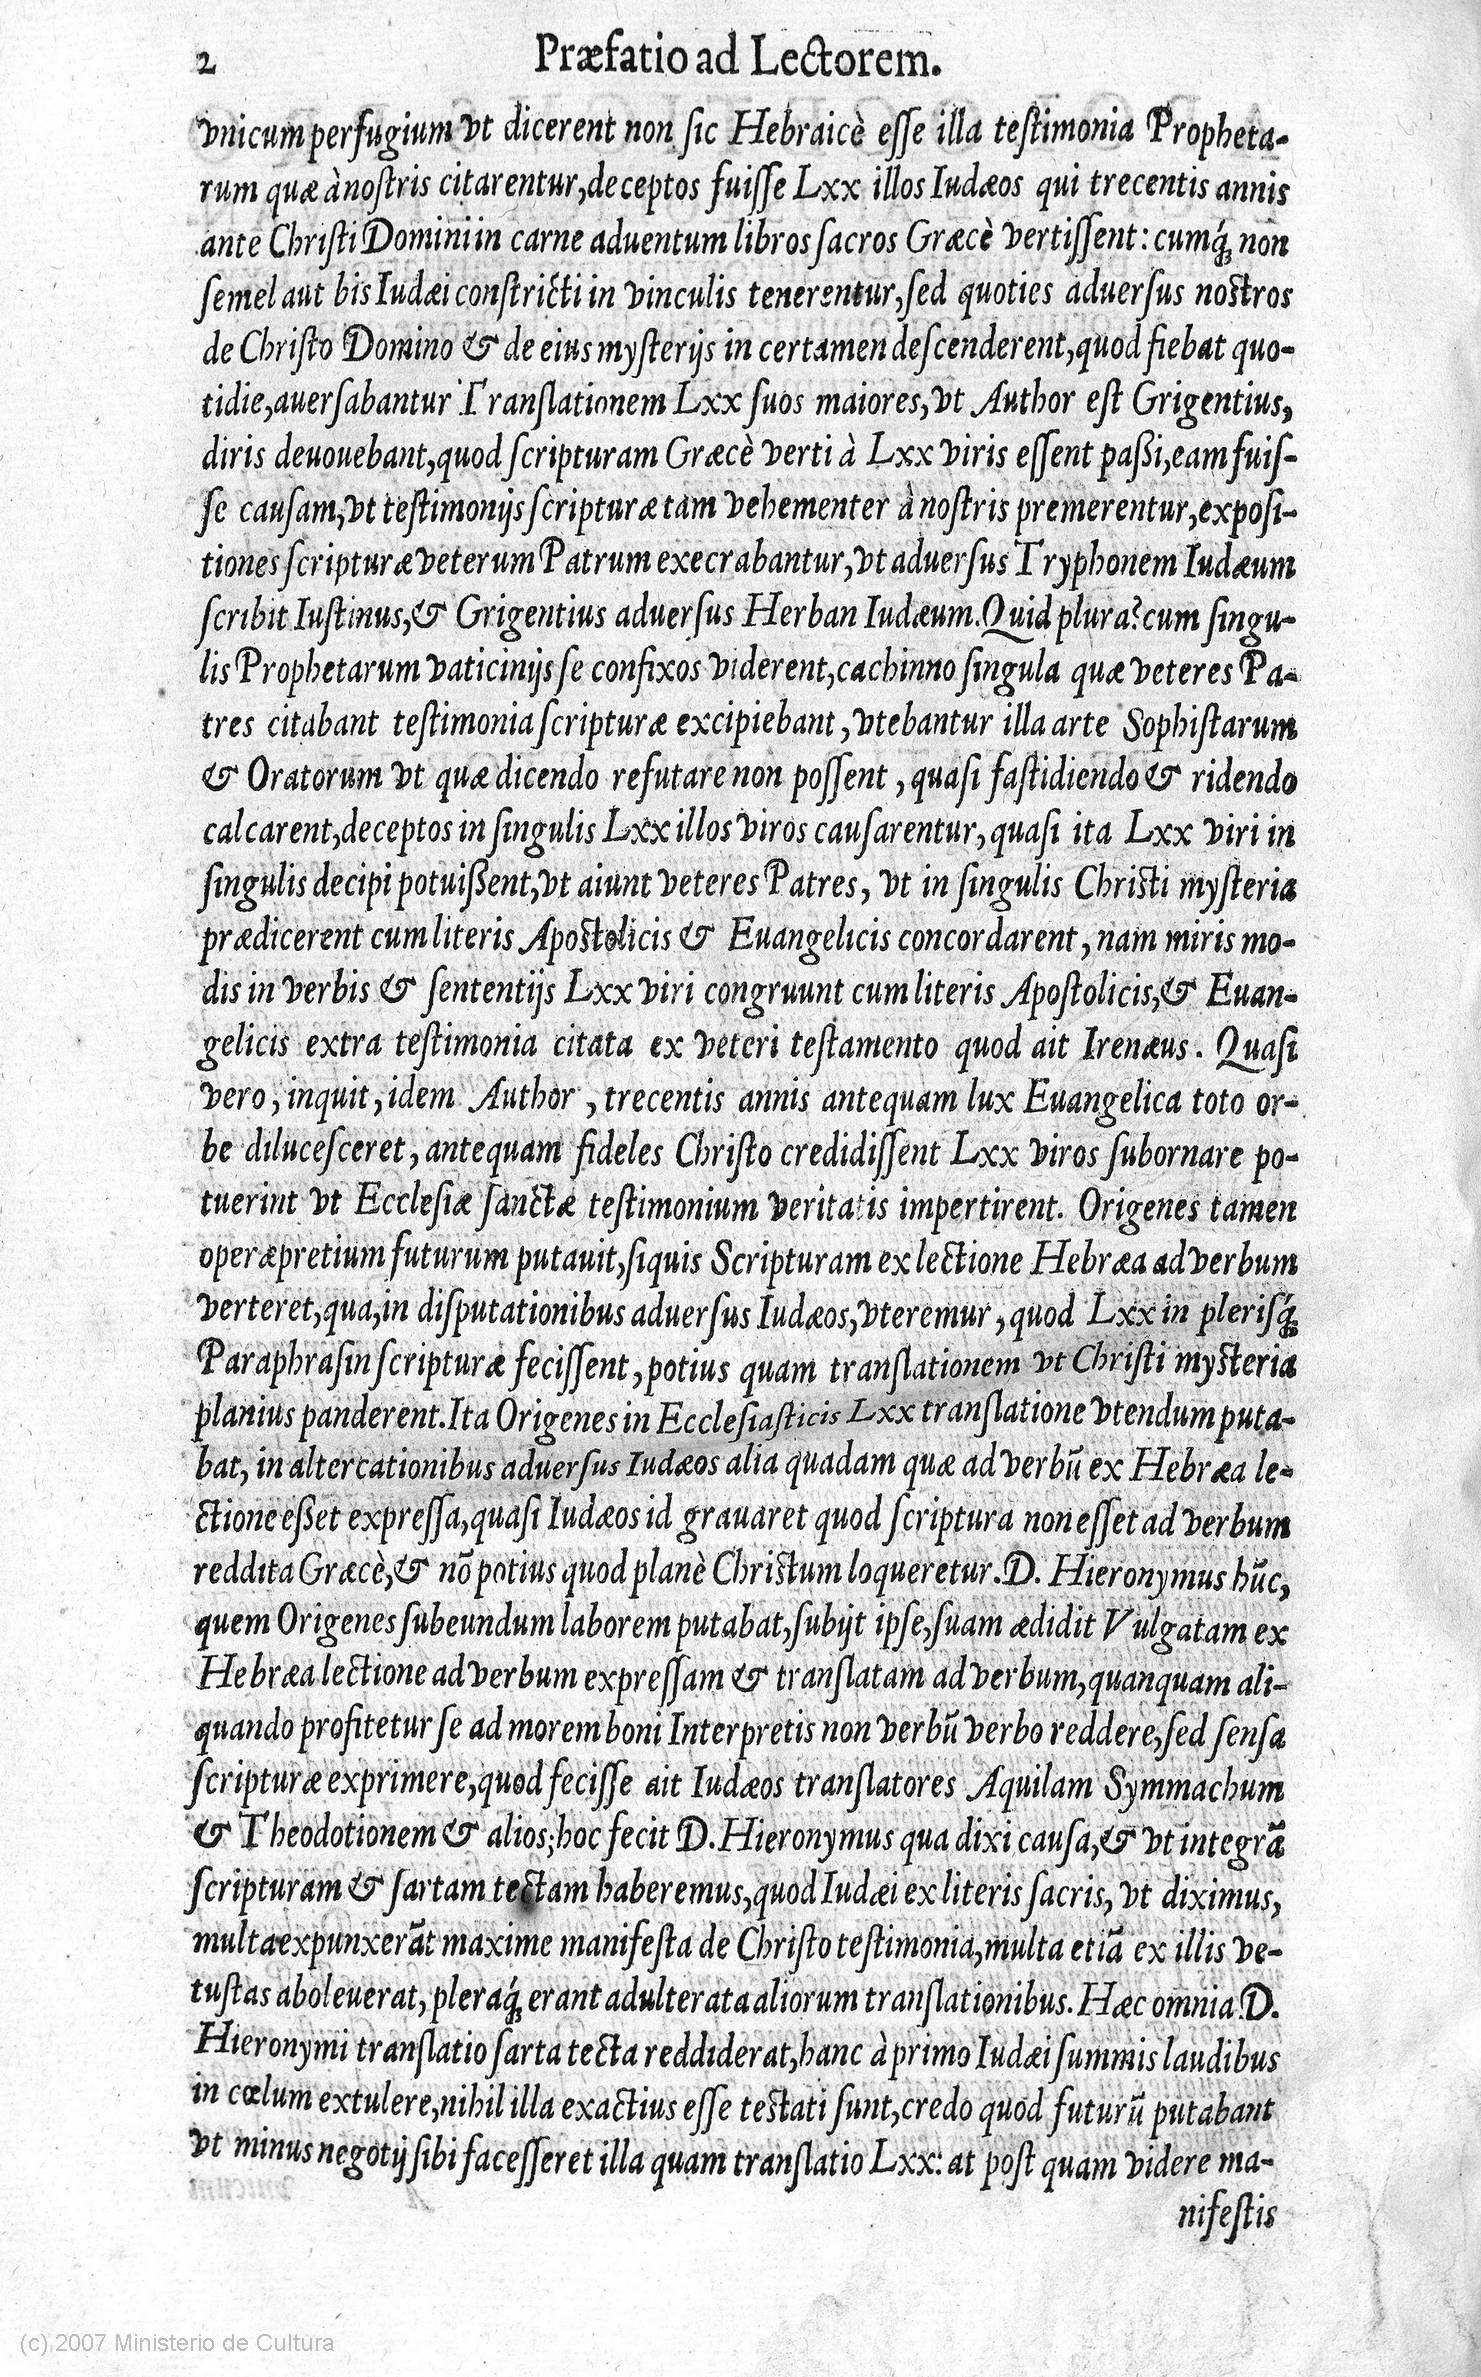 2 Præfatio ad Lectorem.
vnicum perfugium vt dicerent non sic Hebraicè esse illa testimonia Propheta-
rum quæ à nostris citarentur, deceptos fuisse Lxx illos Iudæos qui trecentis annis
ante Christi Domini in carne aduentum libros sacros Græcè vertissent: cumq́; non
semel aut bis Iudæi constricti in vinculis tenerentur, sed quoties aduersus nostros
de Christo Domino & de eius mysterijs in certamen descenderent, quod fiebat quo-
tidie, auersabantur Translationem Lxx suos maiores, vt Author est Grigentius,
diris deuouebant, quod scripturam Græcè verti à Lxx viris essent paßi, eam fuis-
se causam, vt testimonijs scripturæ tam vehementer à nostris premerentur, exposi-
tiones scripturæ veterum Patrum execrabantur, vt aduersus Tryphonem Iudæum
scribit Iustinus, & Grigentius aduersus Herban Iudæum. Quid plura? cum singu-
lis Prophetarum vaticinijs se confixos viderent, cachinno singula quæ veteres Pa-
tres citabant testimonia scripturæ excipiebant, vtebantur illa arte Sophistarum
& Oratorum vt quæ dicendo refutare non possent, quasi fastidiendo & ridendo
calcarent, deceptos in singulis Lxx illos viros causarentur, quasi ita Lxx viri in
singulis decipi potuißent, vt aiunt veteres Patres, vt in singulis Christi mysteria
prædicerent cum literis Apostolicis & Euangelicis concordarent, nam miris mo-
dis in verbis & sententijs Lxx viri congruunt cum literis Apostolicis, & Euan-
gelicis extra testimonia citata ex veteri testamento quod ait Irenæus. Quasi
vero, inquit, idem Author, trecentis annis antequam lux Euangelica toto or-
be dilucesceret, antequam fideles Christo credidissent Lxx viros subornare po-
tuerint vt Ecclesiæ sanctæ testimonium veritatis impertirent. Origenes tamen
operæpretium futurum putauit, siquis Scripturam ex lectione Hebræa ad verbum
verteret, qua, in disputationibus aduersus Iudæos, vteremur, quod Lxx in plerisq́;
Paraphrasin scripturæ fecissent, potius quam translationem vt Christi mysteria
planius panderent. Ita Origenes in Ecclesiasticis Lxx translatione vtendum puta-
bat, in altercationibus aduersus Iudæos alia quadam quæ ad verbū ex Hebræa le-
ctione eßet expressa, quasi Iudæos id grauaret quod scriptura non esset ad verbum
reddita Græcè, & nō potius quod planè Christum loqueretur. D. Hieronymus hūc,
quem Origenes subeundum laborem putabat, subijt ipse, suam ædidit Vulgatam ex
Hebræa lectione ad verbum expressam & translatam ad verbum, quanquam ali-
quando profitetur se ad morem boni Interpretis non verbū verbo reddere, sed sensa
scripturæ exprimere, quod fecisse ait Iudæos translatores Aquilam Symmachum
& Theodotionem & alios; hoc fecit D. Hieronymus qua dixi causa, & vt integrā
scripturam & sartam tectam haberemus, quod Iudæi ex literis sacris, vt diximus,
multa expunxerāt maxime manifesta de Christo testimonia, multa etiā ex illis ve-
tustas aboleuerat, pleraq́; erant adulterata aliorum translationibus. Hæc omnia D.
Hieronymi translatio sarta tecta reddiderat, hanc à primo Iudæi summis laudibus
in cœlum extulere, nihil illa exactius esse testati sunt, credo quod futurū putabant
vt minus negotij sibi facesseret illa quam translatio Lxx: at post quam videre ma-
nifestis
(c) 2007 Ministerio de Cultura